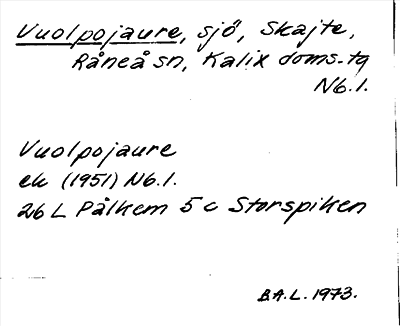 Vuolpojaure, sjö, Skajte,
Råneå sn, Kalix doms-tg
Nb.l.
Vuolpojaure
ek (1951) Nb.l.
26 L Pålkem 5 c Storspiken
B.A.L. 1973.